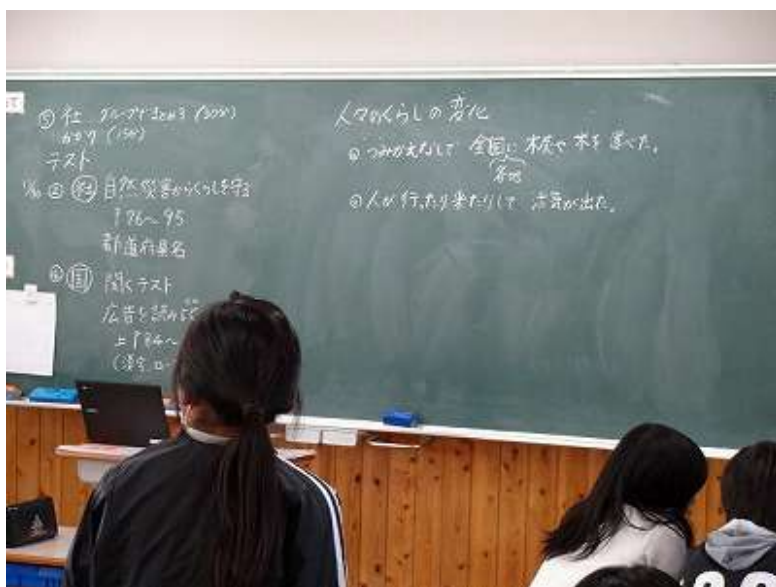 ⑤ 社 グループでまとめる (30分)
(15分)
テスト
② 社 自然災害からくらしを守る
P76〜95
都道府県名
⑥ 国 聞くテスト
広告を読み
上P84〜
(漢字
人々のくらしの変化
◎つみかえなしで 全国に 木炭や 木を 運べた。
各地
◎人が 行ったり来たりして 活気が出た。